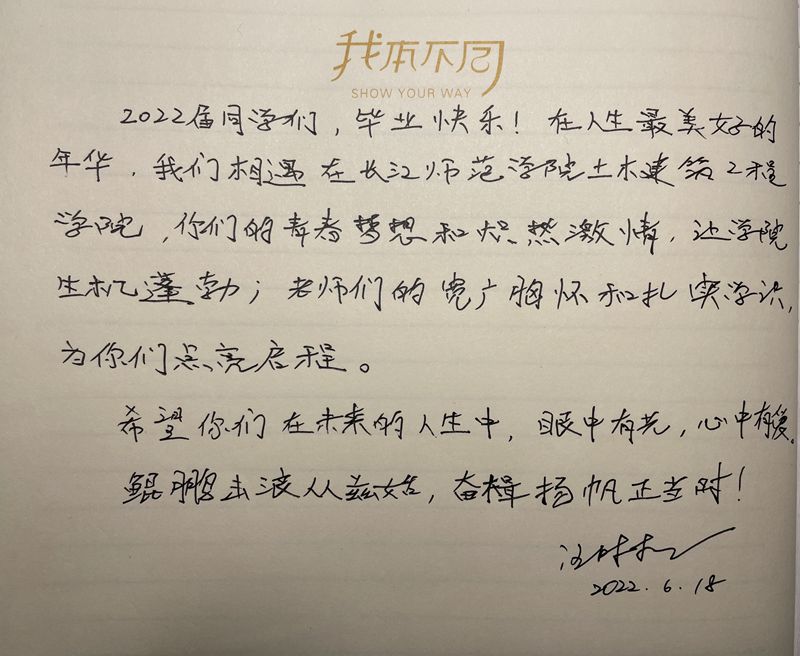 我本不同
SHOW YOUR WAY
2022届同学们，毕业快乐！在人生最美好的
年华，我们相遇在长江师范学院土木建筑工程
学院，你们的青春梦想和炽热激情，让学院
生机蓬勃；老师们的宽广胸怀和扎实学识，
为你们点亮启程。
希望你们在未来的人生中，眼中有光，心中有爱。
鲲鹏击浪从兹始，奋楫扬帆正当时！
2022.6.18